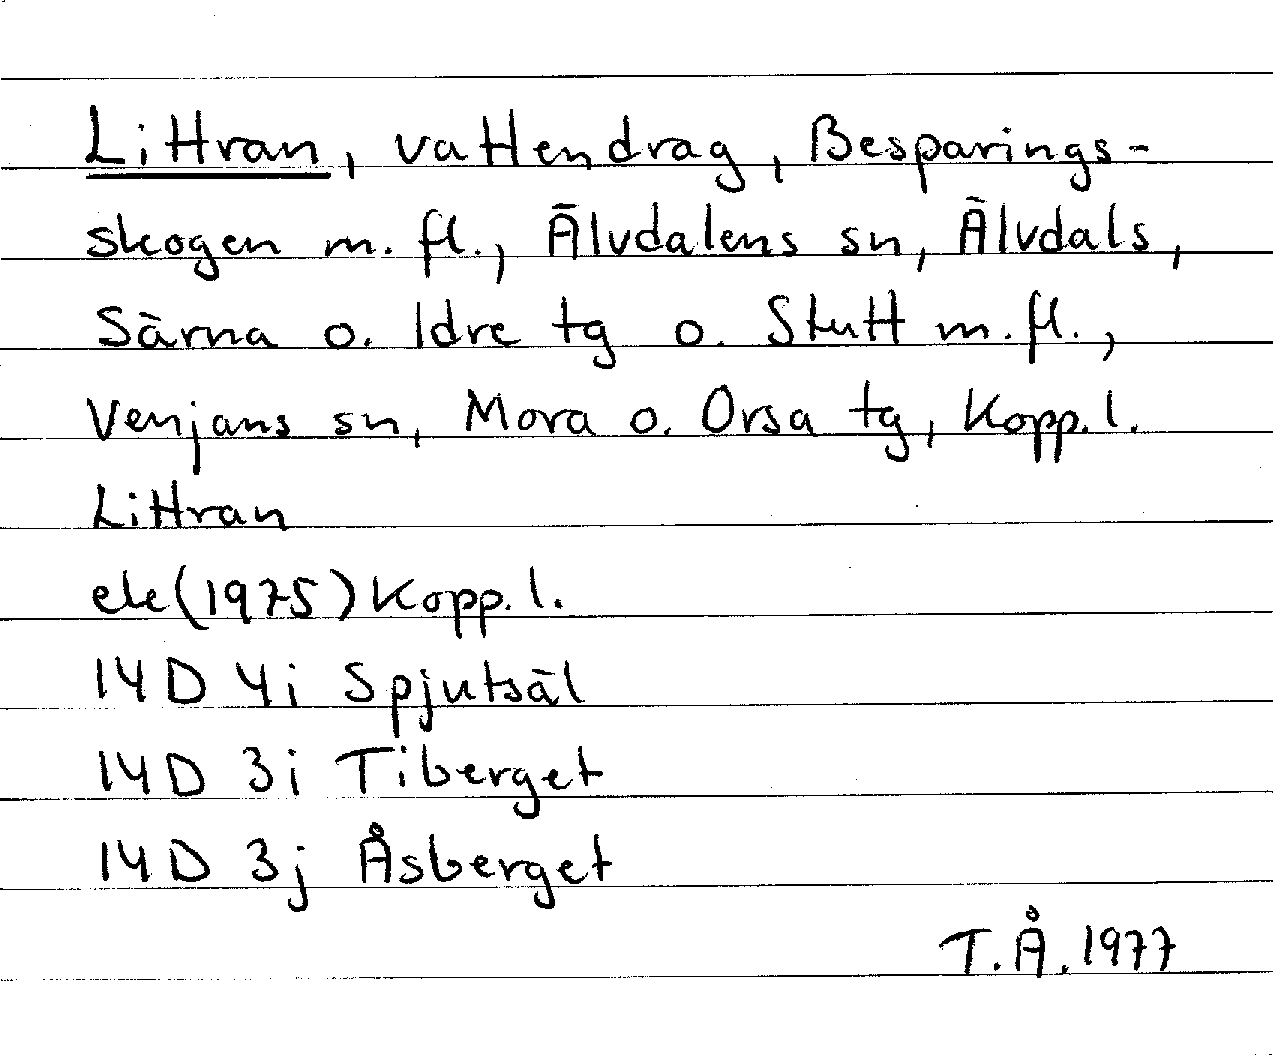 Littran, vattendrag, Besparings-
skogen m. fl., Älvdalens sn, Älvdals,
Särna o. Idre tg o. Stutt m. fl.,
Venjans sn, Mora o. Orsa tg, Kopp. l.
Littran
ek (1975) Kopp. l.
14D 4i Spjutsäl
14D 3i Tiberget
14D 3j Åsberget
T.Å. 1977